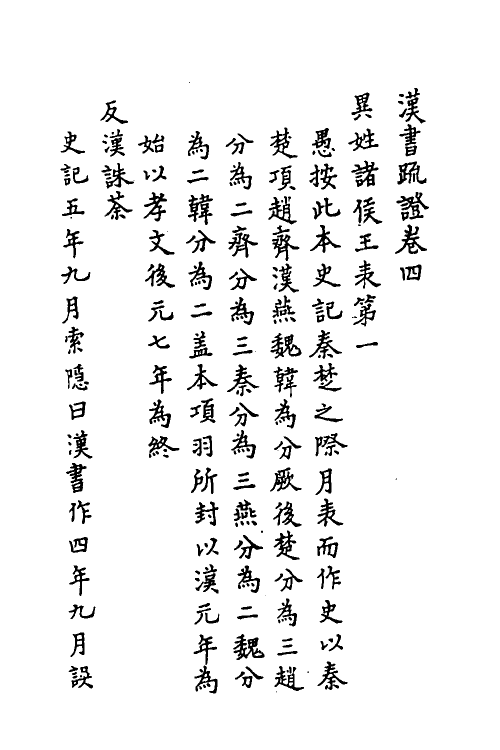 漢書疏證卷四
異姓諸侯王表第一
愚按此本史記秦楚之際月表而作史以秦
楚項趙齊漢燕魏韓為分厥後楚分為三趙
分為二齊分為三秦分為三燕分為二魏分
為二韓分為二蓋本項羽所封以漢元年為
始以孝文後元七年為終
反漢誅荼
史記五年九月索隱曰漢書作四年九月誤